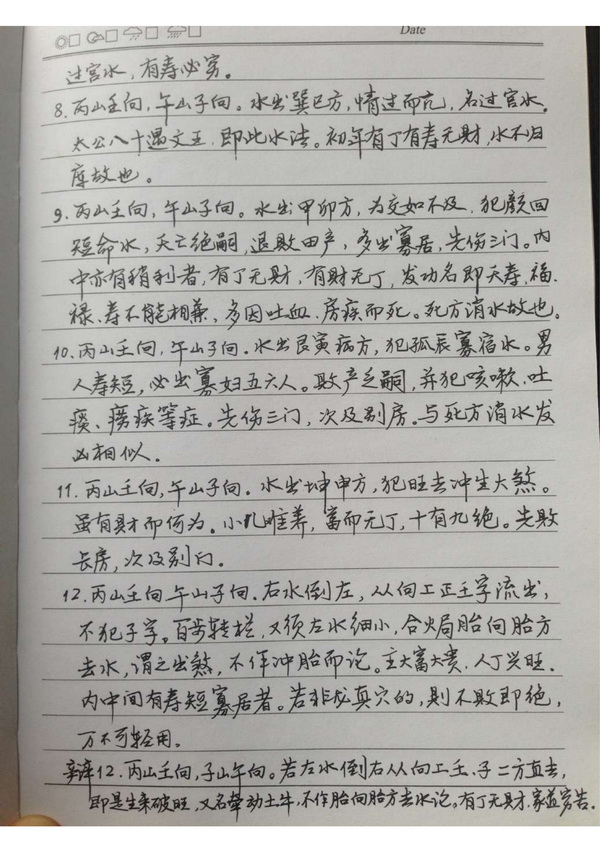 Date
过宫水，有寿必穷。
8.丙山壬向，午山子向。水出巽巳方，情过而亢，名过宫水。
太公八十遇文王，即此水法。初年有丁有寿无财，水不归
库故也。
9.丙山壬向，午山子向。水出甲卯方，为交如不及，犯颜回
短命水，夭亡绝嗣，退败田产，多出寡居，先伤三门。内
中亦有稍利者，有丁无财，有财无丁，发功名即夭寿，福、
禄、寿不能相兼，多因吐血、房疾而死。死方消水故也。
10.丙山壬向，午山子向。水出艮寅病方，犯孤辰寡宿水。男
人寿短，必出寡妇五六人。败产乏嗣，并犯咳嗽、吐
痰、痨疾等症。先伤三门，次及别房。与死方消水发
凶相似。
11.丙山壬向，午山子向。水出坤申方，犯旺去冲生大煞。
虽有财而何为。小儿难养，富而无丁，十有九绝。先败
长房，次及别门。
12.丙山壬向午山子向。右水倒左，从向上正壬字流出，
不犯子字。百步转栏，又须左水细小，合火局胎向胎方
去水，谓之出煞，不作冲胎而论。主大富大贵，人丁兴旺。
内中间有寿短寡居者。若非龙真穴的，则不败即绝，
万不可轻用。
辩12.丙山壬向，子山午向。若左水倒右从向上壬、子二方直去，
即是生来破旺，又名牵动土牛，不作胎向胎方去水论。有丁无财，家道穷苦。